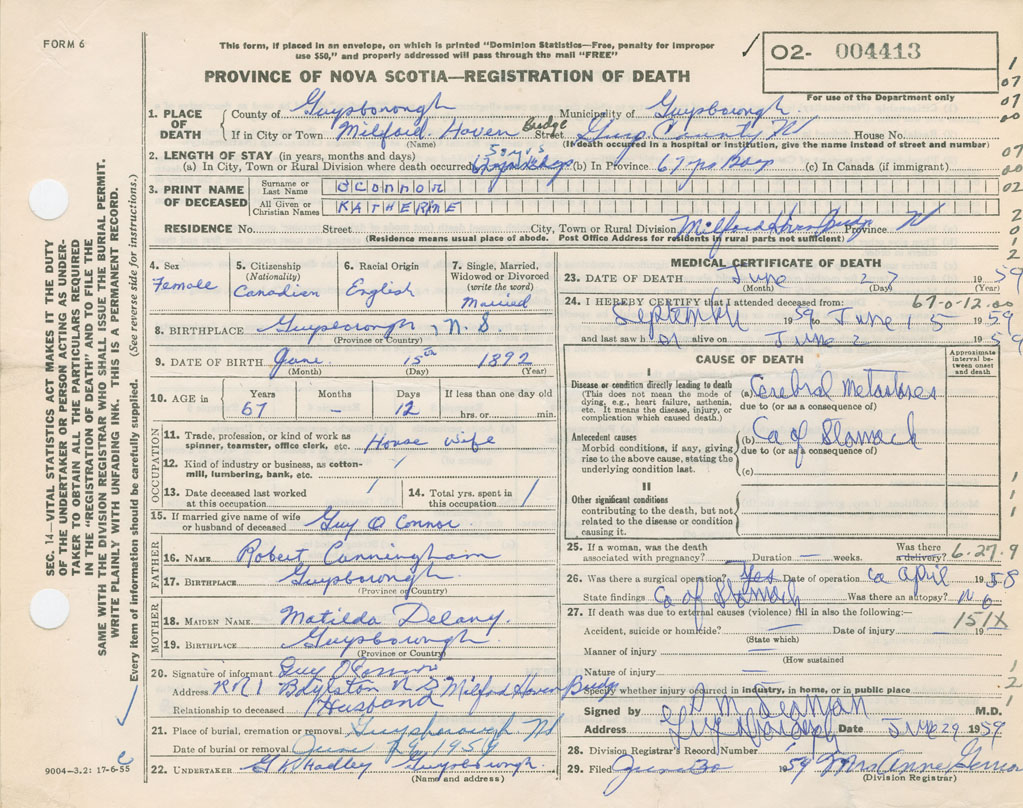 FORM 6
This form, if placed in an envelope, on which is printed "Dominion Statistics—Free, penalty for improper
use $50," and properly addressed will pass through the mail "FREE"
✓ O2- 004413
PROVINCE OF NOVA SCOTIA—REGISTRATION OF DEATH
For use of the Department only
1. PLACE OF DEATH { County of Guysborough Municipality of Guysborough
If in City or Town Milford Haven Bridge Street Guys. County NS House No.
(Name) (If death occurred in a hospital or institution, give the name instead of street and number)
2. LENGTH OF STAY (in years, months and days)
(a) In City, Town or Rural Division where death occurred 5 yrs (b) In Province 67 yrs (c) In Canada (if immigrant)
3. PRINT NAME OF DECEASED
Surname or Last Name O'CONNOR
All Given or Christian Names KATHERINE
RESIDENCE No. Street City, Town or Rural Division Milford Haven Bridge Province NS
(Residence means usual place of abode. Post Office Address for residents in rural parts not sufficient)
4. Sex Female
5. Citizenship (Nationality) Canadian
6. Racial Origin English
7. Single, Married, Widowed or Divorced (write the word) Married
8. BIRTHPLACE Guysborough, N.S
(Province or Country)
9. DATE OF BIRTH June 15th 1892
(Month) (Day) (Year)
10. AGE in Years 67 Months – Days 12 If less than one day old hrs. or min.
OCCUPATION
11. Trade, profession, or kind of work as spinner, teamster, office clerk, etc. House Wife
12. Kind of industry or business, as cotton-mill, lumbering, bank, etc. /
13. Date deceased last worked at this occupation / 14. Total yrs. spent in at this occupation /
15. If married give name of wife or husband of deceased Guy O Connor
FATHER
16. NAME Robert Cunningham
17. BIRTHPLACE Guysborough
(Province or Country)
MOTHER
18. MAIDEN NAME Matilda Delany.
19. BIRTHPLACE Guysborough
(Province or Country)
20. Signature of informant Guy O'Connor
Address RR1 Boylston N.S Milford Haven Bridg
Relationship to deceased Husband
21. Place of burial, cremation or removal Guysborough NS
Date of burial or removal June 29, 1959
22. UNDERTAKER Hadley Guysborough.
(Name and address)
MEDICAL CERTIFICATE OF DEATH
23. DATE OF DEATH June 27 1959
(Month) (Day) (Year)
67-0-12.00
24. I HEREBY CERTIFY that I attended deceased from:
September 1959 to June 15 1959
and last saw her alive on June 2 1959
CAUSE OF DEATH
Approximate interval between onset and death
I
Disease or condition directly leading to death
(This does not mean the mode of dying, e.g., heart failure, asthenia, etc. It means the disease, injury, or complication which caused death.)
(a) Cerebral Metastases
due to (or as a consequence of)
Antecedent causes
Morbid conditions, if any, giving rise to the above cause, stating the underlying condition last.
(b) Ca of Stomach
due to (or as a consequence of)
(c)
II
Other significant conditions
contributing to the death, but not related to the disease or condition causing it.
25. If a woman, was the death associated with pregnancy? Duration — weeks. Was there a delivery? 6-27-9
26. Was there a surgical operation? Yes Date of operation ca April 1958
State findings Ca of Stomach Was there an autopsy? No
27. If death was due to external causes (violence) fill in also the following:—
151X
Accident, suicide or homicide? — Date of injury — 19
(State which)
Manner of injury —
(How sustained
Nature of injury —
Specify whether injury occurred in industry, in home, or in public place
Signed by M.D.
Address Guysborough Date June 29 1959
28. Division Registrar's Record Number
29. Filed June 30 1959 Mrs Anne
(Division Registrar)
SEC. 14—VITAL STATISTICS ACT MAKES IT THE DUTY
OF THE UNDERTAKER OR PERSON ACTING AS UNDER-
TAKER TO OBTAIN ALL THE PARTICULARS REQUIRED
IN THE "REGISTRATION OF DEATH" AND TO FILE THE
SAME WITH THE DIVISION REGISTRAR WHO SHALL ISSUE THE BURIAL PERMIT.
WRITE PLAINLY WITH UNFADING INK. THIS IS A PERMANENT RECORD.
Every item of information should be carefully supplied. (See reverse side for instructions.)
9004-3.2: 17-6-55
1
07
07
00
07
00
02
2
0
1
2
1
2
1